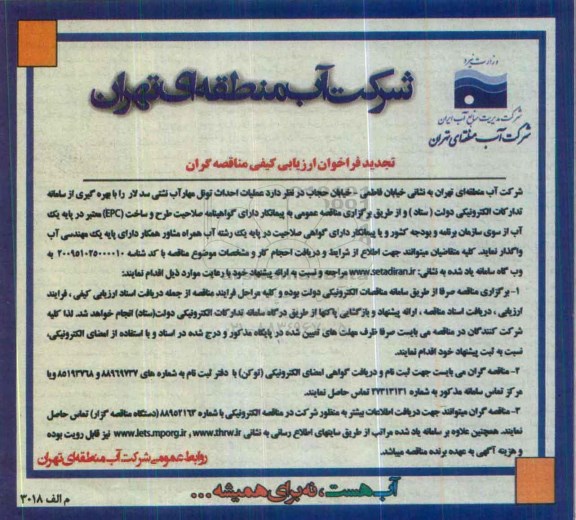 وزارت نیرو
شرکت مدیریت منابع آب ایران
شرکت آب منطقه‌ای تهران
شرکت آب منطقه‌ای تهران
تجدید فراخوان ارزیابی کیفی مناقصه گران
شرکت آب منطقه‌ای تهران به نشانی خیابان فاطمی - خیابان حجاب در نظر دارد عملیات احداث تونل مهار آب نشتی سد لار را با بهره گیری از سامانه
تدارکات الکترونیکی دولت ( ستاد ) و از طریق برگزاری مناقصه عمومی به پیمانکار دارای گواهینامه صلاحیت طرح و ساخت (EPC) معتبر در پایه یک
آب از سوی سازمان برنامه و بودجه کشور و یا پیمانکار دارای گواهی صلاحیت در پایه یک رشته آب همراه مشاور همکار دارای پایه یک مهندسی آب
واگذار نماید. کلیه متقاضیان میتوانند جهت اطلاع از شرایط و دریافت احجام کار و مشخصات موضوع مناقصه با کد شناسه ۲۰۰۹۵۱۰۲۵۰۰۰۰۱۰ به
وب گاه سامانه یاد شده به نشانی: www.setadiran.ir مراجعه و نسبت به ارائه پیشنهاد خود با رعایت موارد ذیل اقدام نمایند:
۱- برگزاری مناقصه صرفا از طریق سامانه مناقصات الکترونیکی دولت بوده و کلیه مراحل فرایند مناقصه از جمله دریافت اسناد ارزیابی کیفی ، فرایند
ارزیابی ، دریافت اسناد مناقصه ، ارائه پیشنهاد و بازگشایی پاکتها از طریق درگاه سامانه تدارکات الکترونیکی دولت(ستاد) انجام خواهد شد. لذا کلیه
شرکت کنندگان در مناقصه می بایست صرفا ظرف مهلت های تعیین شده در پایگاه مذکور و درج شده در اسناد و با استفاده از امضای الکترونیکی،
نسبت به ثبت پیشنهاد خود اقدام نمایند.
۲- مناقصه گران می بایست جهت ثبت نام و دریافت گواهی امضای الکترونیکی (توکن) با دفتر ثبت نام به شماره های ۸۸۹۶۹۷۳۷ و ۸۵۱۹۳۷۶۸ و یا
مرکز تماس سامانه مذکور به شماره ۲۷۳۱۳۱۳۱ تماس حاصل نمایند.
۳- مناقصه گران میتوانند جهت دریافت اطلاعات بیشتر به منظور شرکت در مناقصه الکترونیکی با شماره ۸۸۹۵۲۱۶۳ (دستگاه مناقصه گزار) تماس حاصل
نمایند. همچنین علاوه بر سامانه یاد شده مراتب از طریق سایتهای اطلاع رسانی به نشانی www.thrw.ir ، www.Iets.mporg.ir نیز قابل رویت بوده
و هزینه آگهی به عهده برنده مناقصه میباشد.
روابط عمومی شرکت آب منطقه‌ای تهران
آب هست، نه برای همیشه ...
م الف ۳۰۱۸